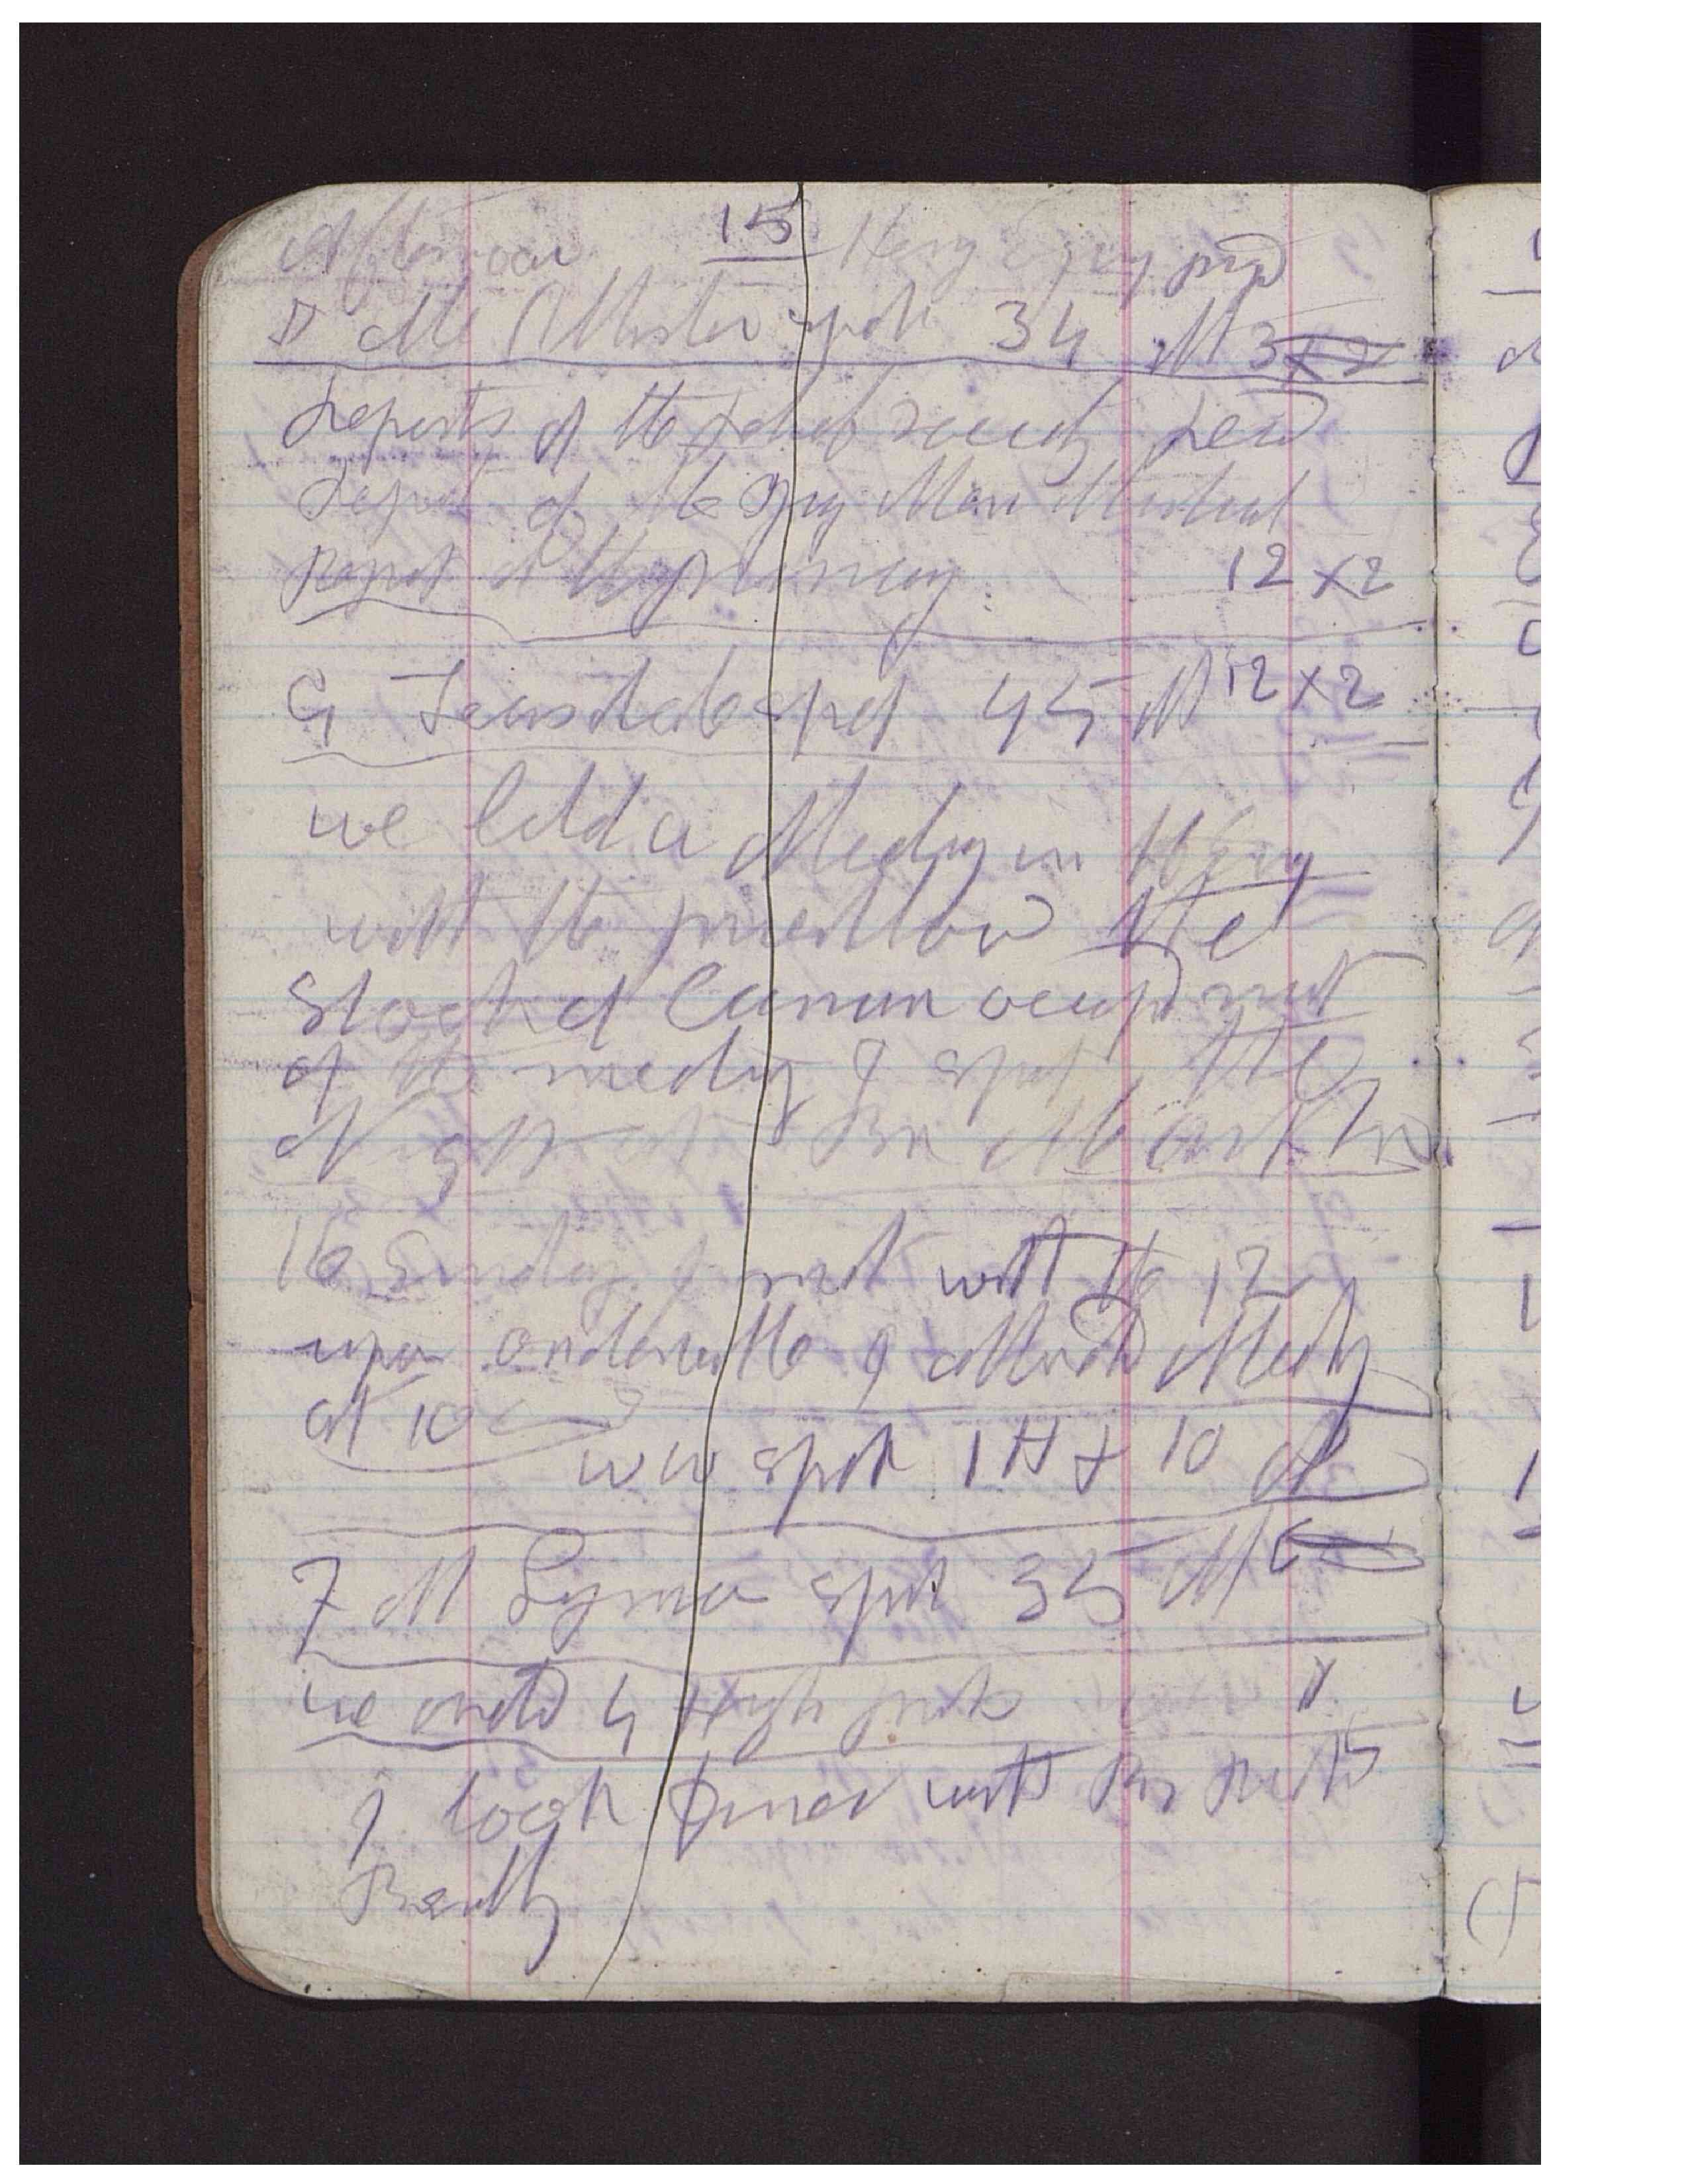 Afternoon 15 Henry Eyring prayed
D McAllister spok 34 M 3
Reports of the Relief Society Read
Report of the Yung Man Mutual
Report of the primary 12 x 2
G Teasdale spok 45 M 12 x 2
we held a Meeting in the Eving
with the priesthood the
Stock & Cannan occupid most
of the meeting I spent the
Night at Br McArthur
16 Sunday I met with the 12
upon ordenu the I attended Meeting
at 10
WW spok 1 H & 10 M
F M Lyman spok 35 M
we ordd 4 High prests
I took Dinner with Br